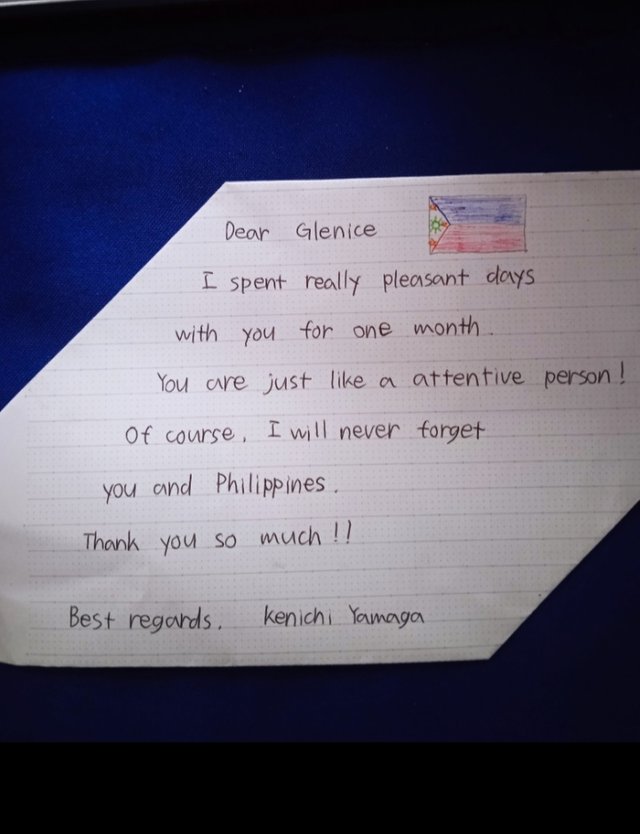 Dear Glenice
I spent really pleasant days
with you for one month.
You are just like a attentive person!
Of course, I will never forget
you and Philippines.
Thank you so much!!
Best regards, Kenichi Yamaga